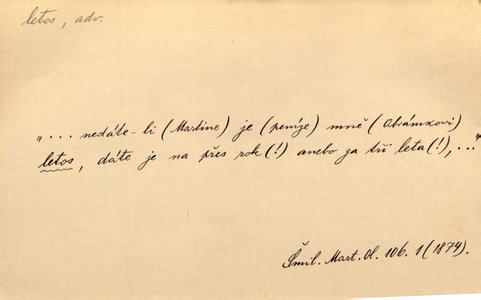 letos, adv.
"... nedáte-li (Martine) je (peníze) mně (Obrámkovi)
letos, dáte je na přes rok (!) anebo za tři leta (!), ..."
Šmil. Mart. Ol. 106. 1 (1874).